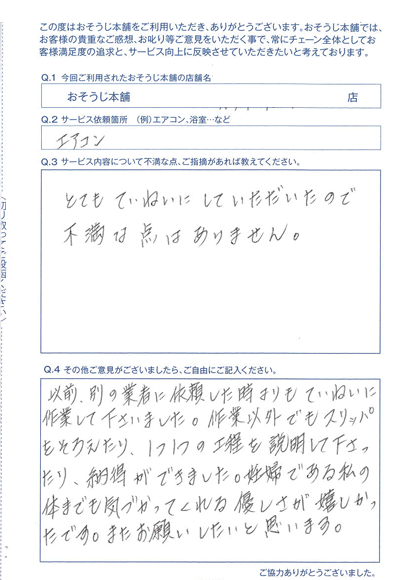 この度はおそうじ本舗をご利用いただき、ありがとうございます。おそうじ本舗では、
お客様の貴重なご感想、お叱り等ご意見をいただく事で、常にチェーン全体としてお
客様満足度の追求と、サービス向上に反映させていただきたいと考えております。
Q.1 今回ご利用されたおそうじ本舗の店舗名
おそうじ本舗 店
Q.2 サービス依頼箇所 （例）エアコン、浴室…など
エアコン
Q.3 サービス内容について不満な点、ご指摘があれば教えてください。
とてもていねいにしていただいたので
不満な点はありません。
Q.4 その他ご意見がございましたら、ご自由にご記入ください。
以前、別の業者に依頼した時よりもていねいに
作業して下さいました。作業以外でもスリッパ
をそろえたり、1つ1つの工程を説明して下さっ
たり、納得ができました。妊婦である私の
体までも気づかってくれる優しさが嬉しかっ
たです。またお願いしたいと思います。
ご協力ありがとうございました。